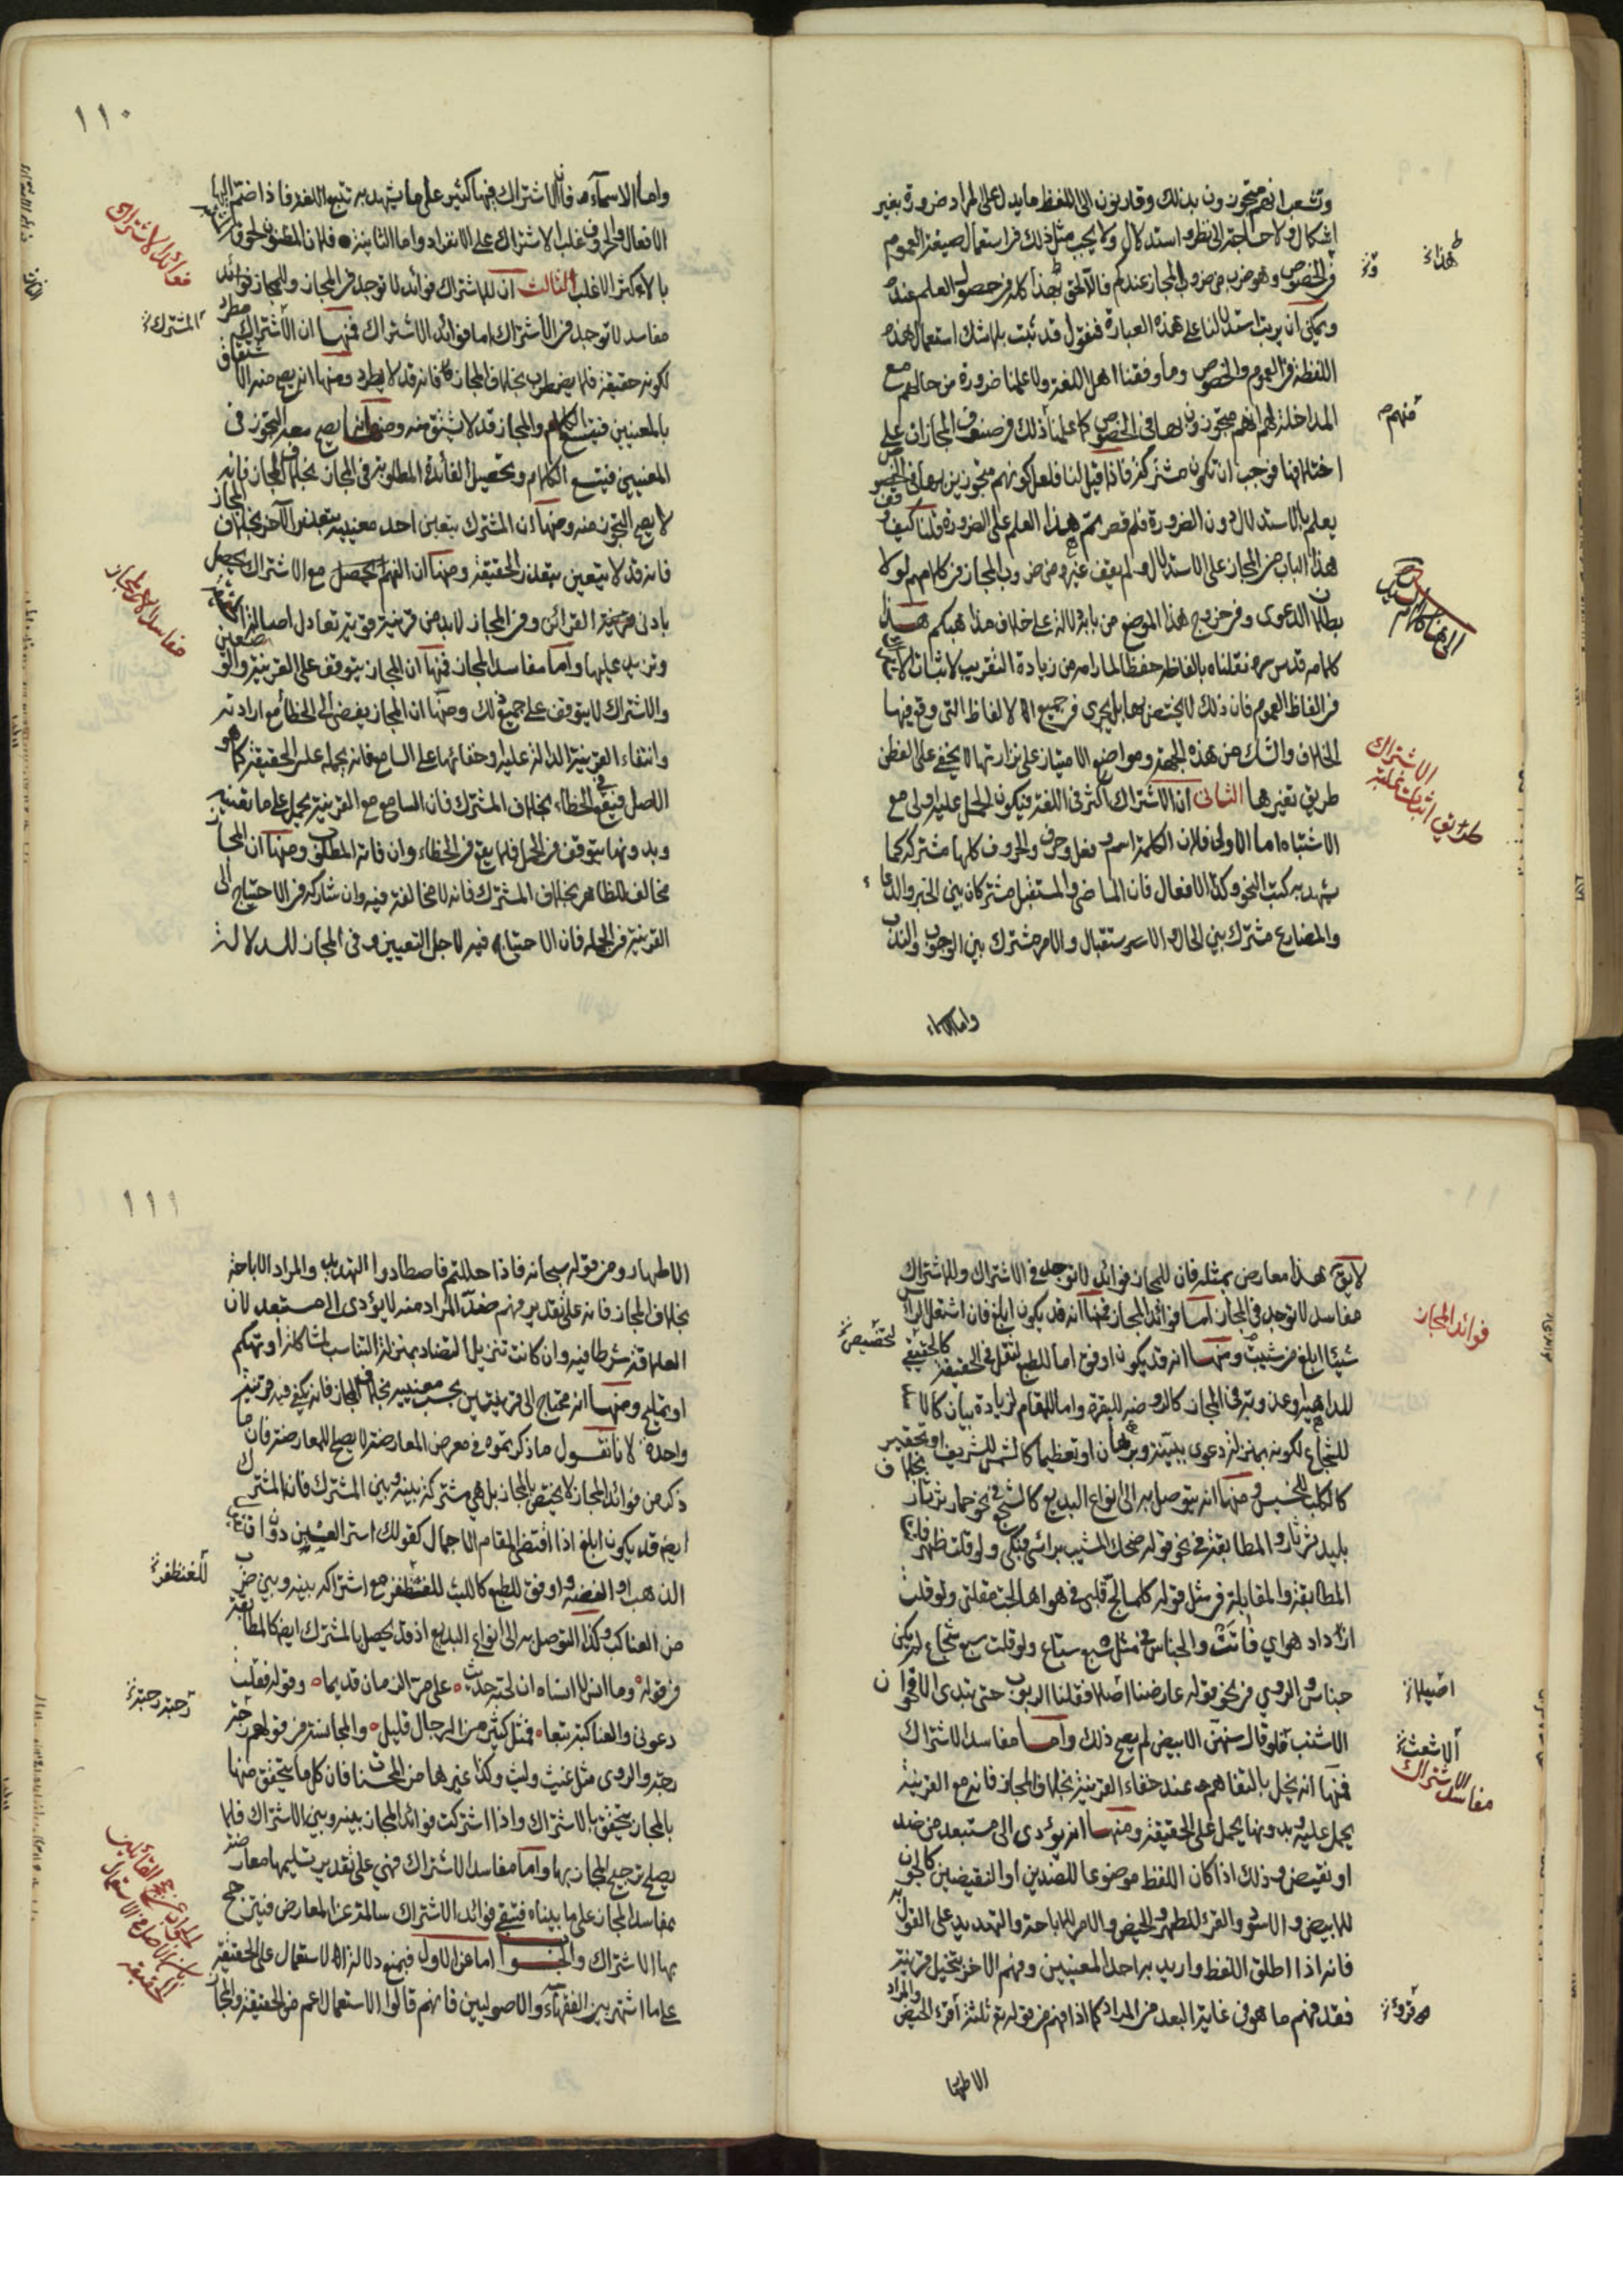 وتشعب انهم متجوزون بذلك وقارنون الى اللفظ ما يدل على المراد ضرورة بغير
اشكال ولا حاجة الى نظر واستدلال ولا يجب مثل ذلك في استعمال صيغة العموم
في الخصوص وهو ضرب من ضروب المجاز عندكم فالا لحق هذا كله في حصول العلم عنده
ويمكن ان يرتب استدلالنا على هذه العبارة فنقول قد ثبت بلا شك استعمال هذه
اللفظة في العموم والخصوص وما وقفنا اهل اللغة ولا علمنا ضرورة من حالهم مع
المداخلة لهم انهم متجوزون بها في الخصوص كما علمنا ذلك في صنوف المجازات على
اختلافها فوجب ان تكون مشتركة فاذا قيل لنا فلعل كونهم متجوزين بها في الخصوص
يعلم بالاستدلال دون الضرورة فلم قصرتم هذا العلم على الضرورة قلنا كيف وقف
هذا الباب من المجاز على الاستدلال ولم يقف غيره من ضروب المجاز في كلامهم لولا
بطلان الدعوى وفي خروج هذا الموضع من بابه دلالة على خلاف مذاهبكم هذا
كلامه قدس سره نقلناه بالفاظه حفظا لمرامه من زيادة التقريب لاثبات
في الفاظ العموم فان ذلك لا يختص بها بل يجري في جميع الالفاظ التي وقع فيها
الخلاف والشك من هذه الجهة ومواضع الامتياز على نزارتها لا يخفى على الفطن
طريق تغيرها الثاني ان الاشتراك اكثر في اللغة فيكون الحمل عليه اولى مع
الاشتباه اما الاولى فلان الكلمة اسم وفعل وحرف والحروف كلها مشتركة كما
شهد به كتب النحو وكذا الافعال فان الماضي والمستقبل مشتركان بين الخبر والدعاء
والمضارع مشترك بين الحال والاستقبال والامر مشترك بين الوجوب والندب
واما الاسماء
هذاء
فهم
الى هنا كلام السيد
طريق اثبات غلبة الاشتراك
١١٠
واما الاسماء فلان الاشتراك فيها كثير على ما يشهد به تتبع اللغة فاذا ضم اليها
الافعال والحروف غلب الاشتراك على الانفراد واما الثانية فلان المظنون لحوق
بالاكثر الاغلب الثالث ان للاشتراك فوائد لا توجد في المجاز وللمجاز
مفاسد لا توجد في الاشتراك اما فوائد الاشتراك فمنها ان الاشتراك مطرد
لكونه حقيقة فلا يضطرب بخلاف المجاز فانه قد لا يطرد ومنها انه يصح منه الاشتقاق
بالمعنيين فيتسع الكلام والمجاز قد لا يشتق منه ومنها انه يصح معه التجوز في
المعنيين فيتسع الكلام ويحصل الفائدة المطلوبة في المجاز بخلاف المجاز فانه
لا يصح التجوز منه ومنها ان المشترك يتعين احد معنييه بتعذر الآخر بخلاف المجاز
فانه قد لا يتعين بتعذر الحقيقة ومنها ان الفهم يحصل مع الاشتراك
بادنى قرينة القرائن وفي المجاز لابد من قرينة قوية تعادل اصالة الحقيقة
وتزيد عليها واما مفاسد المجاز فمنها ان المجاز يتوقف على القرينة والوضعين
والاشتراك لا يتوقف على جميع ذلك ومنها ان المجاز يفضي الى الخطأ مع ارادته
وانتفاء القرينة الدالة عليه او خفائها على السامع فانه يحمله على الحقيقة كما هو
الاصل فيقع في الخطاء بخلاف المشترك فان السامع مع القرينة يحمل على ما تقتضيه
وبدونها يتوقف في الحمل فلا يقع في الخطاء وان فاته المطلوب ومنها ان المجاز
مخالف للظاهر بخلاف المشترك فانه لا مخالفة فيه وان شاركه في الاحتياج الى
القرينة في الجملة فان الاحتياج فيه لاجل التعيين وفي المجاز للدلالة
فوائد الاشتراك
المشترك
مفاسد المجاز
لا يق هذا معارض بمثله فان للمجاز فوائد لا توجد في الاشتراك وللاشتراك
مفاسد لا توجد في المجاز اما فوائد المجاز فمنها انه قد يكون ابلغ فان اشتعل الراس
شيبا ابلغ من شبت ومنها انه قد يكون اوفق اما للطبع لثقل في الحقيقة كالخنفقيق
للداهية او عذوبة في المجاز كالروضة للمقبرة واما للمقام لزيادة بيان كالاسد
للشجاع لكونه بمنزلة دعوى ببينة وبرهان او تعظيما كالشمس للشريف او تحقير
كالكلب للخسيس ومنها انه يتوصل به الى انواع البديع كالسجع في نحو حمار ثرثار بخلاف
بليد ثرثار والمطابقة في نحو قوله ضحك المشيب براسه فبكى ولو قلت ظهر فات
المطابقة والمقابلة في مثل قوله كلما لج قلبي في هواها لجت مقلتي ولو قلت
ازداد هواي فاتت والجناس في مثل سبع سباع ولو قلت سبع شجاع لم يكن
جناس والروي في نحو قوله عارضنا اصلا فقلنا الربرب حتى تبدى الاقحوان
الاشنب فلو قال سنهن الابيض لم يصح ذلك واما مفاسد الاشتراك
فمنها انه يخل بالتفاهم عند خفاء القرينة بخلاف المجاز فانه مع القرينة
يحمل عليه وبدونها يحمل على الحقيقة ومنها انه يؤدي الى مستبعد من ضد
او نقيض وذلك اذا كان اللفظ موضوعا للضدين او النقيضين كالجون
للابيض والاسود والقرء للطهر والحيض والامر للاباحة والتهديد على القول به
فانه اذا اطلق اللفظ واريد به احد المعنيين وفهم الاخر بتخيل قرينة
فقد فهم ما هو في غاية البعد من المراد كما اذا فهم من قوله تع ثلثة اقراء الحيض والمراد
الاطهار
فوائد المجاز
لتخصيص
اصيلا
الاشعث
مفاسد الاشتراك
قروء
١١١
الاطهار ومن قوله سبحانه فاذا حللتم فاصطادوا التهديد والمراد الاباحة
بخلاف المجاز فانه على تقدير فهم ضد المراد منه لا يؤدي الى مستبعد لان
العلاقة شرط فيه وان كانت تنزيل التضاد بمنزلة التناسب لمشاكلة او تهكم
او تمليح ومنها انه محتاج الى قرينتين بحسب معنييه بخلاف المجاز فانه يكفي فيه قرينة
واحدة لانا نقول ما ذكرتموه في معرض المعارضة لا يصلح للمعارضة فان ما
ذكر من فوائد المجاز لا يختص بالمجاز بل هي مشتركة بينه وبين المشترك فان المشترك
ايضا قد يكون ابلغ اذا اقتضى المقام الاجمال كقولك اشتر العين دون
الذهب او الفضة واوفق للطبع كالليث للغضنفر مع اشتراكه بينه وبين ضرب
من العناكب وكذا التوصل به الى انواع البديع اذ قد يحصل بالمشترك ايضا كالمطابقة
في قوله وما انس لا انساه ان لحتة حدث على مر الزمان قديما وقوله فقلت
دعوني والعناكبة تبعا فمثل كثير من الرجال قليل والمجانسة في قولهم رحبة
رحبة والروي مثل غيث وليث وكذا غيرها من المحسنات فان كل ما يتحقق منها
بالمجاز يتحقق بالاشتراك واذا اشتركت فوائد المجاز بينه وبين الاشتراك فلا
يصلح ترجيح المجاز بها واما مفاسد الاشتراك فهي على تقدير تسليمها معارضة
بمفاسد المجاز على ما بيناه فتبقى فوائد الاشتراك سالمة عن المعارض فيترجح
بها الاشتراك والجواب اما عن الاول فبمنع دلالة الاستعمال على الحقيقة
على ما اشتهر بين الفقهاء والاصوليين فانهم قالوا الاستعمال اعم من الحقيقة والمجاز
للغضنفر
رحبة رحبة
الجواب عن حجج القائلين
بان الاصل في الاستعمال
الحقيقة